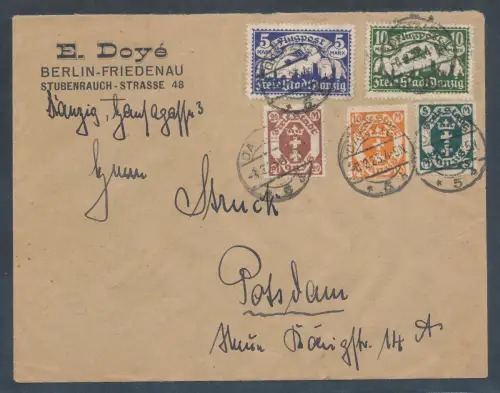 E. Doyé
BERLIN-FRIEDENAU
STUBENRAUCH-STRASSE 48
Danzig, Hansagasse 3
Herrn
Struck
Potsdam
Königstr. 14 A
5 Flugpost 5
MARK MARK
Freie Stadt Danzig
10 Flugpost 10
Freie Stadt Danzig
DANZIG
5